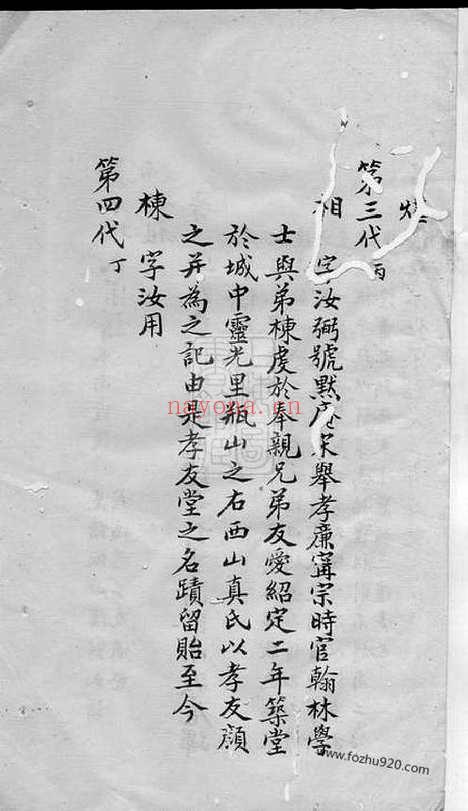 第三代 丙
相 字汝弼號默庵宋舉孝廉寧宗時官翰林學
士與弟棟虔於奉親兄弟友愛紹定二年築堂
於城中靈光里瓶山之右西山真氏以孝友顏
之并為之記由是孝友堂之名蹟留貽至今
棟 字汝用
第四代 丁
nayona.cn
www.fozhu920.com